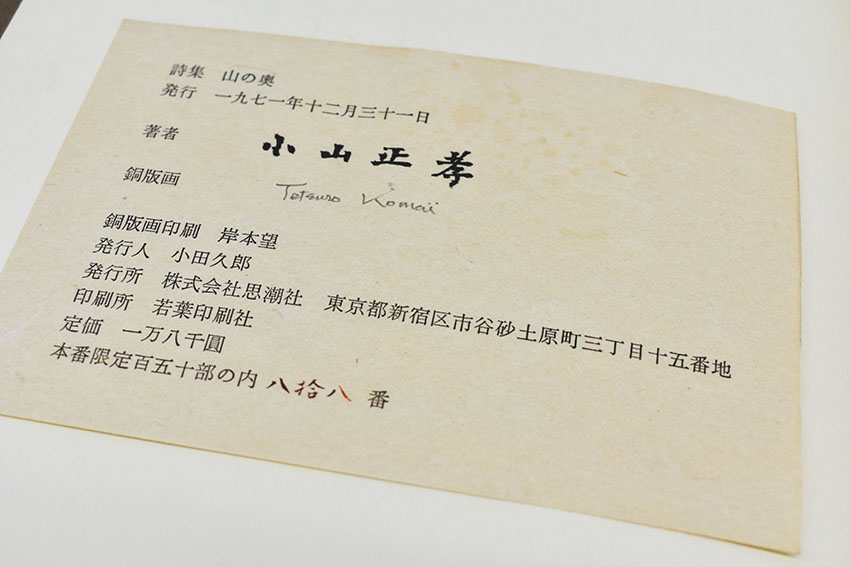 詩集　山の奥
発行　一九七一年十二月三十一日
著者　小山正孝
銅版画　Tetsuro Komai
銅版画印刷　岸本望
発行人　小田久郎
発行所　株式会社思潮社　東京都新宿区市谷砂土原町三丁目十五番地
印刷所　若葉印刷社
定価　一万八千圓
本番限定百五十部の内 八拾八 番